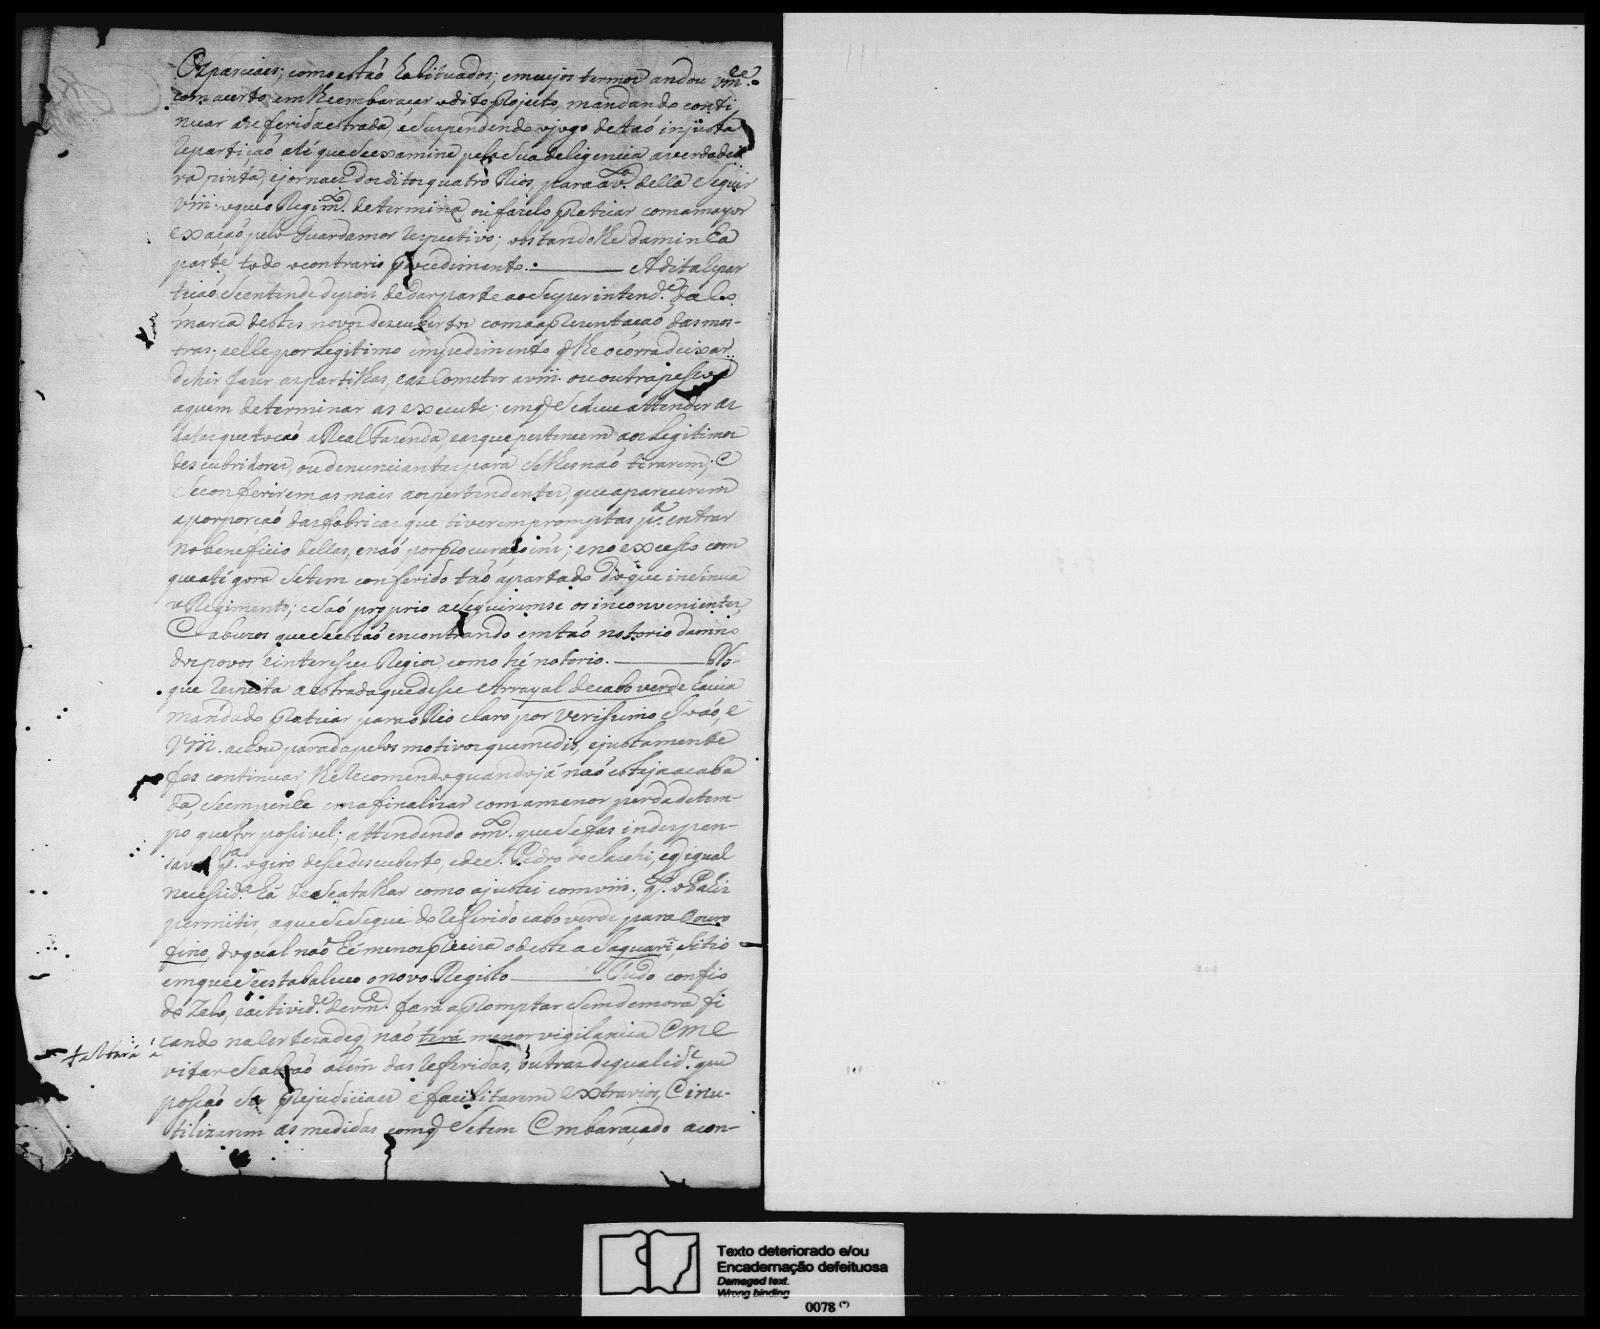 Esparciaes; como estaõ habituados; em cujos termos andou vm.ce
com acerto em lhe embaraçar o dito Projecto, mandando conti
nuar a referida estrada, e suspendendo o jugo de taõ injusta
repartiçaõ até que se examine pela sua deligencia a verdadei
ra pinta, e jornaes dos ditos quatro Rios, para a v.ta della seguir
Vm. o que o Regim.to determina, ou fazelo praticar com a mayor
exaçaõ pelo Guardamor respectivo; obstandolhe da minha
parte todo o contrario procedimento. A dita repar
tiçaõ se entende depois de dar parte ao Superintend.e da Co
marca destes novos descubertos com a aprezentaçaõ das mos-
tras; e elle por legitimo impedimento q lhe ocorra deixar
de hir fazer as partilhas, e as cometer a vm. ou outra pessoa
a quem determinar as execute; em q se deve attender as
datas que tocaõ a Real Fazenda, e as que pertencem aos legitimos
descubridores, ou denunciantes para se lhes naõ tirarem; e
se conferirem as mais aos pertendentes, que aparecerem
a porporçaõ das fabricas que tiverem promptas p.a entrar
no beneficio dellas, e naõ por procuraçoins; e no excesso com
que até gora se tem conferido taõ apartado do que insinua
o Regimento; e saõ proprio a seguiremse os inconvenientes,
e abuzos que se estaõ encontrando em taõ notorio damno
dos povos e interesses Regios, como hé notorio. No
que respeita a estrada que desse Arrayal de cabo verde havia
mandado praticar para o Rio claro por Verissimo Joaõ, e
Vm. achou parada pelos motivos que me diz, e justamente
fez continuar lhe recomendo quando já naõ esteja acaba
da, se empenhe em a finalizar com a menor perda de tem-
po que for possivel; attendendo o m.to que se faz indespen-
savel p.a o giro desse descuberto, e de S. Pedro do Jacohi, e q igual
necessid.e há de se atalhar como ajustei com vm., q.do o Paiz
permitir, a que se segue do referido cabo verde para Ouro
fino, do qual naõ hé menos precizo o deste a Jaguari, sitio
em que se estabaleceo o novo Registo Tudo confio
do Zelo, e activid.e de vm.ce fará apromptar sem demora fi
cando na certeza de q naõ terá menor vigilancia em e
faltará
vitar se abraõ alem das referidas, outras de qualid.e que
possaõ ser prejudiciaes e facilitarem extravios, e inu-
tilizarem as medidas com q se tem embaraçado a con-
Texto deteriorado e/ou
Encadernação defeituosa
Damaged text.
Wrong binding
0078 (*)